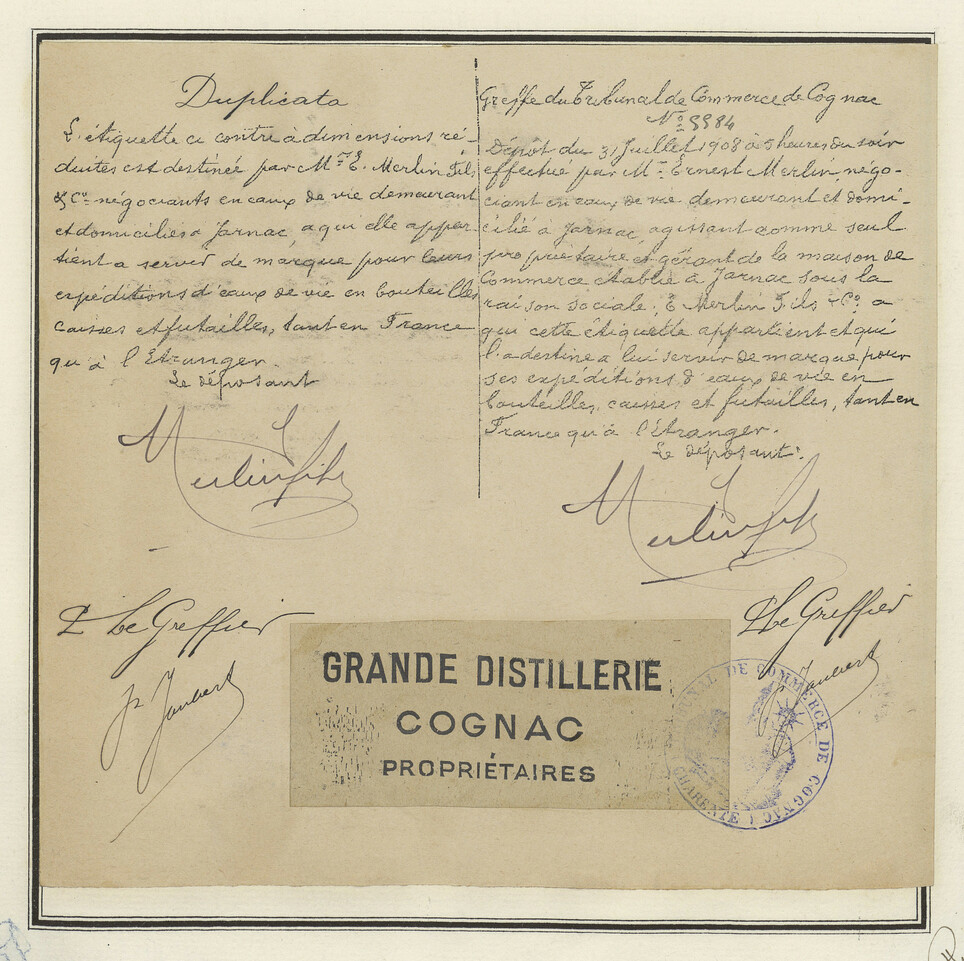 Duplicata
L'étiquette ci contre à dimensions ré-
duites est destinée par Mr E. Merlin Fils
& Cie négociants en eaux de vie demeurant
et domiciliés à Jarnac, a qui elle appar-
tient a servir de marque pour leurs
expéditions d'eaux de vie en bouteilles
caisses et futailles, tant en France
qu'à l'Etranger.
Le déposant
Merlin fils
P Le Greffier
Greffe du Tribunal de Commerce de Cognac
No 5584
Dépôt du 31 Juillet 1908 à 5 heures du soir
effectué par Mr Ernest Merlin, négo-
ciant en eaux de vie demeurant et domi-
cilié à Jarnac, agissant comme seul
propriétaire et gérant de la maison de
Commerce établie à Jarnac sous la
raison sociale: E Merlin Fils & Co a
qui cette étiquette appartient et qui
l'a destine a lui servir de marque pour
ses expéditions d'eaux de vie en
bouteilles, caisses et futailles, tant en
France qu'à l'Etranger.
Le déposant:
Merlin fils
P Le Greffier
GRANDE DISTILLERIE
COGNAC
PROPRIÉTAIRES
TRIBUNAL DE COMMERCE DE COGNAC
(CHARENTE)